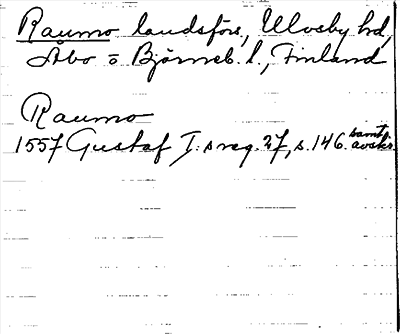 Raumo landsförs, Ulvsby hd,
Åbo o Björneb. l., Finland
Raumo
1557 Gustaf I:s reg. 27, s. 146. samt. avskr.